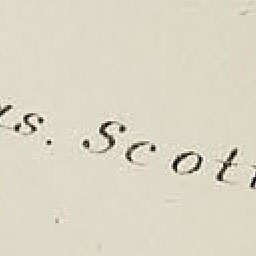 s. Scott